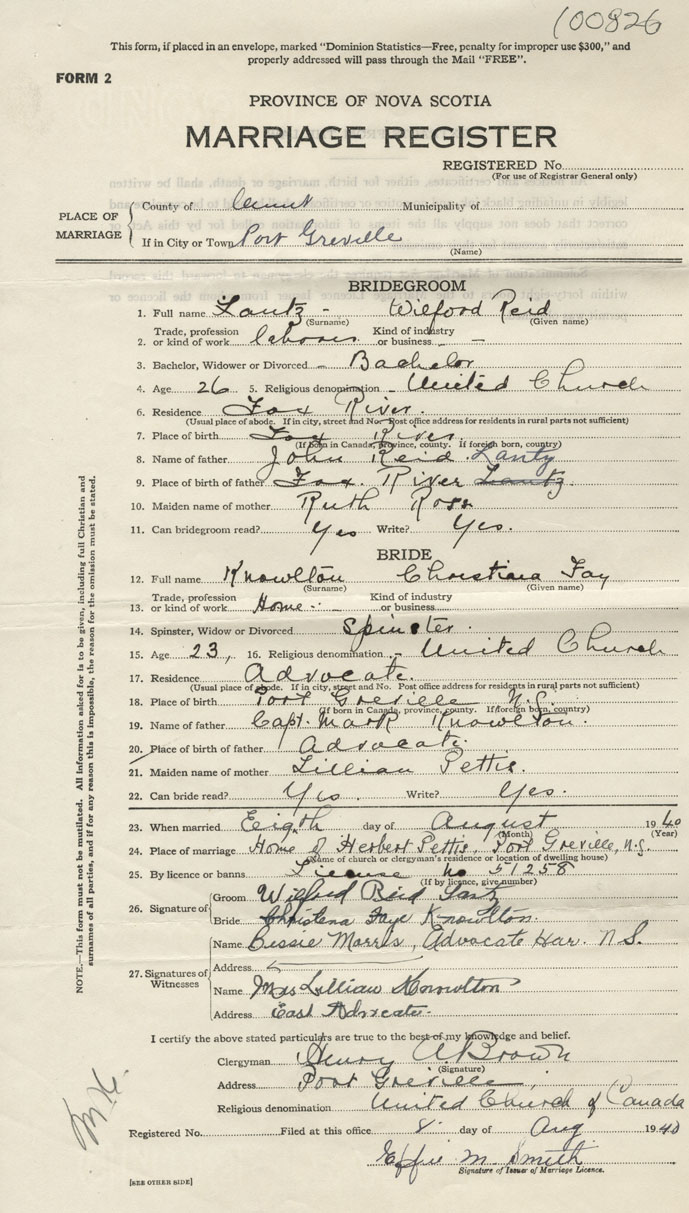 100826
This form, if placed in an envelope, marked "Dominion Statistics—Free, penalty for improper use $300," and
properly addressed will pass through the Mail "FREE".
FORM 2
PROVINCE OF NOVA SCOTIA
MARRIAGE REGISTER
REGISTERED No.
(For use of Registrar General only)
PLACE OF MARRIAGE
County of Municipality of
If in City or Town Port Greville
(Name)
BRIDEGROOM
1. Full name Lantz - Wilford Reid
(Surname) (Given name)
2. Trade, profession or kind of work laborer Kind of industry or business -
3. Bachelor, Widower or Divorced Bachelor
4. Age 26 5. Religious denomination United Church
6. Residence Fox River.
(Usual place of abode. If in city, street and No. Post office address for residents in rural parts not sufficient)
7. Place of birth Fox River.
(If born in Canada, province, county. If foreign born, country)
8. Name of father John Reid Lantz
9. Place of birth of father Fox. River Lantz
10. Maiden name of mother Ruth Ross
11. Can bridegroom read? Yes Write? Yes.
BRIDE
12. Full name Knowlton Christiana Fay
(Surname) (Given name)
13. Trade, profession or kind of work Home - Kind of industry or business
14. Spinster, Widow or Divorced Spinster.
15. Age 23, 16. Religious denomination United Church
17. Residence Advocate.
(Usual place of abode. If in city, street and No. Post office address for residents in rural parts not sufficient)
18. Place of birth Port Greville N.S.
(If born in Canada, province, county. If foreign born, country)
19. Name of father Capt. Mark Knowlton.
20. Place of birth of father Advocate.
21. Maiden name of mother Lillian Pettis.
22. Can bride read? Yes. Write? Yes.
23. When married Eigth day of August 1940
(Month) (Year)
24. Place of marriage Home of Herbert Pettis. Port Greville, N.S.
(Name of church or clergyman's residence or location of dwelling house)
25. By licence or banns License no 51258
(If by licence, give number)
26. Signature of
Groom Wilford Reid Lantz
Bride Christena Faye Knowlton.
27. Signatures of Witnesses
Name Bessie Morris, Advocate Har. N.S.
Address
Name Mrs Lillian Knowlton
Address East Advocate.
I certify the above stated particulars are true to the best of my knowledge and belief.
Clergyman Henry A. Brown
(Signature)
Address Port Greville,
Religious denomination United Church of Canada
Registered No. Filed at this office 8 day of Aug 1940
Effie M. Smith
Signature of Issuer of Marriage Licence.
[SEE OTHER SIDE]
NOTE.—This form must not be mutilated. All information asked for is to be given, including full Christian and
surnames of all parties, and if for any reason this is impossible, the reason for the omission must be stated.